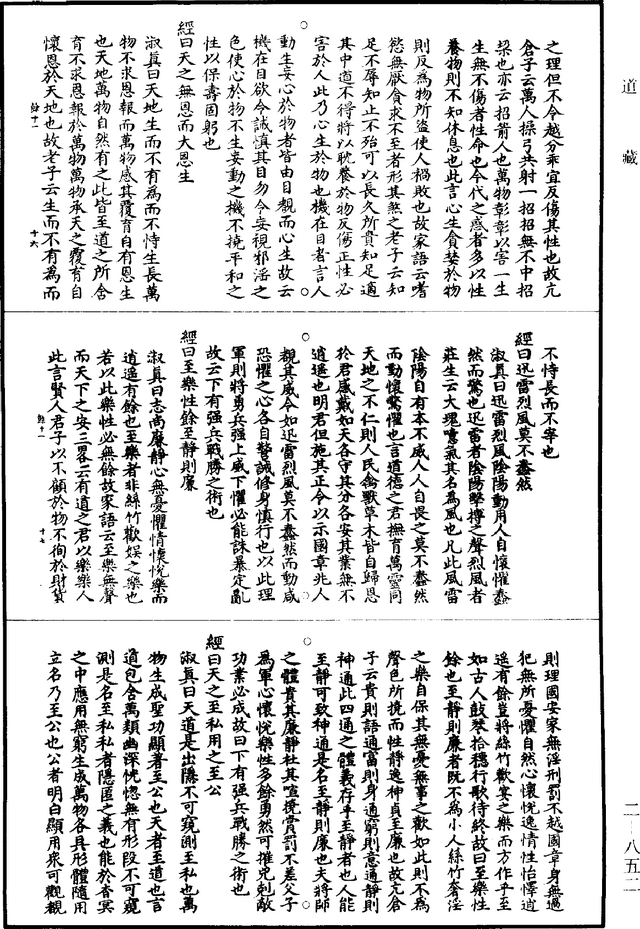 道藏
之理但不令越分乖宜反傷其性也故亢
倉子云萬人操弓共射一招招無不中招
梁也亦云招箭人也萬物彰彰以害一生
生無不傷者性命也今代之惑者多以性
養物則不知休息也此言心生貪婪於物
則反為物所盜使人禍敗也故家語云嗜
慾無猒貪求不至者形其煞之老子云知
足不辱知止不殆可以長久所貴知足適
其中道不得將以耽養於物反傷正性必
害於人此乃心生於物也機在目者言人
動生妄心於物者皆由目覩而心生故云
機在目欲令誡慎其目勿令妄視邪淫之
色使心於物不生妄動之機不撓平和之
性以保壽固躬也
經曰天之無恩而大恩生
淑真曰天地生而不有為而不恃生長萬
物不求恩報而萬物感其覆育自有恩生
也天地萬物自然有之此皆至道之所含
育不求恩報於萬物萬物承天之覆育自
懷恩於天地也故老子云生而不有為而
十六
不恃長而不宰也
經曰迅雷烈風莫不蠢然
淑真曰迅雷烈風陰陽動用人自懷懼蠢
然而驚也迅雷者陰陽擊摶之聲烈風者
莊生云大塊噫氣其名為風也凡此風雷
陰陽自有本不威人人自畏之莫不蠢然
而動懷驚懼也言道德之君撫育萬靈同
天地之不仁則人民禽獸草木皆自歸恩
於君感戴如天各守其分各安其業無不
逍遥也明君但施其正令以示國章兆人
覩其威令如迅雷烈風莫不蠢然而動咸
恐懼之心各自警誡修身慎行也以此理
軍則將勇兵强上威下懼必能誅暴定亂
故云下有强兵戰勝之術也
經曰至樂性餘至靜則廉
淑真曰志尚廉靜心無憂懼情懷悅樂而
逍遥有餘也至樂者非絲竹歡娛之樂也
若以此樂性必無餘故家語云至樂無聲
而天下之安三畧云有道之君以樂樂人
此言賢人君子以不顧於物不徇於財貨
十七
則理國安家無淫刑罰不越國章身無過
犯無所憂懼自然心懷悅逸情性怡懌逍
遥有餘豈將絲竹歡宴之樂而方作乎至
如古人鼓琴拾穗行歌待終故曰至樂性
餘也至靜則廉者既不為小人絲竹奢淫
之樂自保其無憂無事之歡如此則不為
聲色所撓而性靜逸神貞至廉也故亢倉
子云貴則語通富則身通窮則意通靜則
神通此四通之體義存乎至靜者也人能
至靜可致神通是名至靜則廉也夫將帥
之體貴其廉靜杜其喧撓賞罰不差父子
為軍心懷悅樂性多餘勇然可摧兇剋敵
功業必成故曰下有强兵戰勝之術也
經曰天之至私用之至公
淑真曰天道是出隱不可窺測至私也萬
物生成聖功顯著至公也天者至道也言
道包含萬類幽深恍惚無有形段不可窺
測是名至私私者隱匿之義也能於杳冥
之中應用無窮生成萬物各具形體隨用
立名乃至公也公者明白顯用衆可觀覩
二一八五二